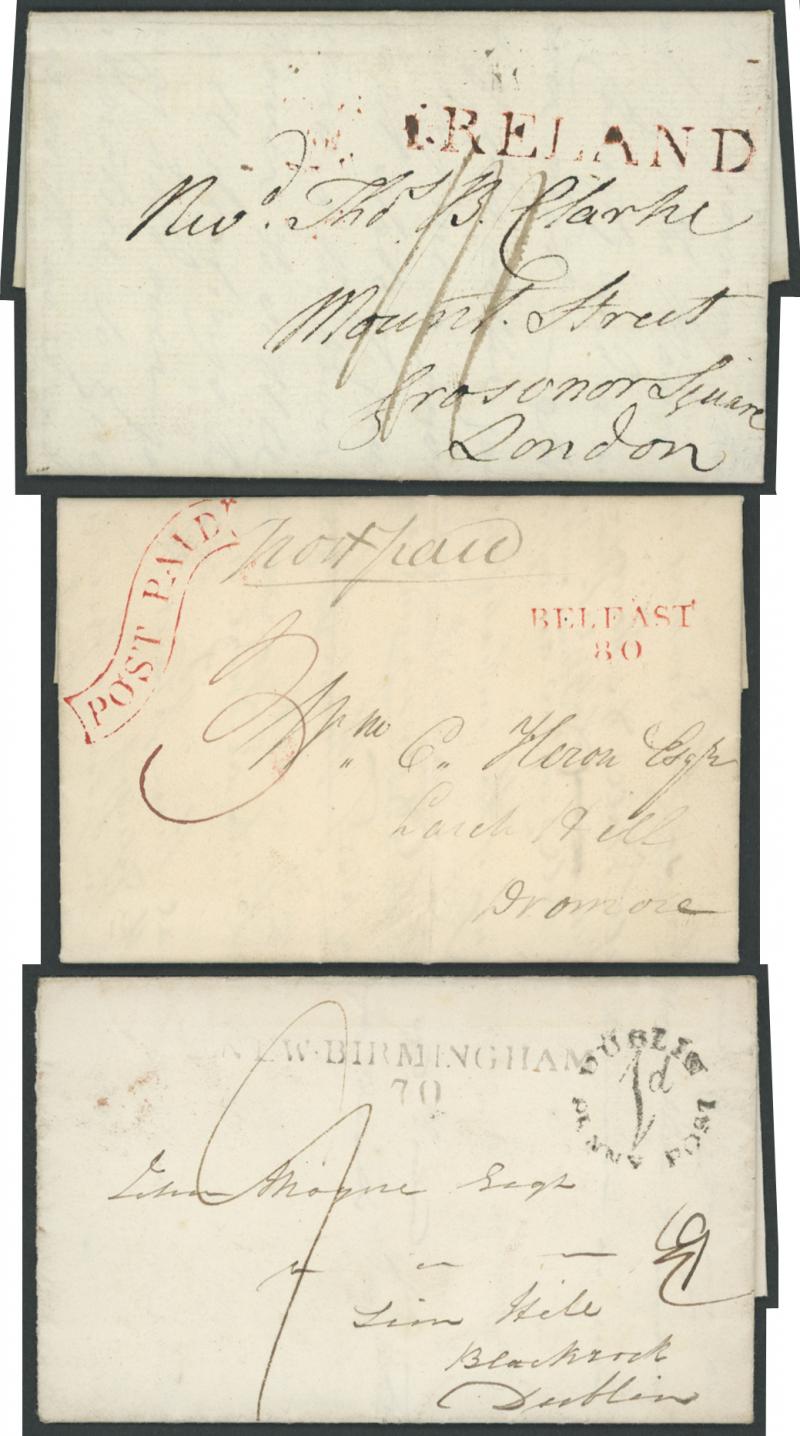 IRELAND
Revd. Thos. B. Clarke
Mount. Street
Grosvonor Square
London
POST PAID
Post paid
BELFAST
80
3
Wm C. Heron Esqr
Larch Hill
Dromore
NEW-BIRMINGHAM
70
DUBLIN PENNY POST
1d
John Mayne Esqr
Lion Hill
Blackrock
Dublin